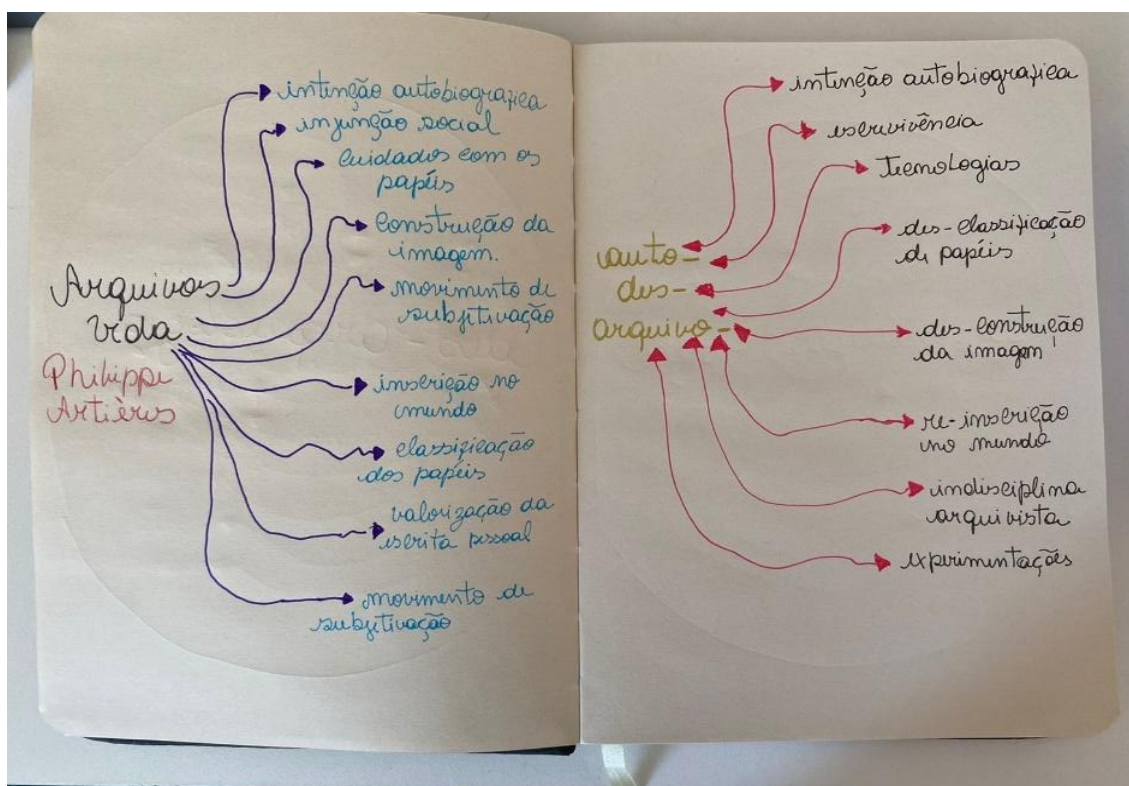 Arquivos
Vida
Philippe
Artières
intenção autobiografica
injunção social
cuidados com os
papéis
construção da
imagem.
movimento de
subjetivação
inscrição no
mundo
classificação
dos papéis
valorização da
escrita pessoal
movimento de
subjetivação
auto-
des-
arquivo-
intenção autobiografica
escrevivência
Tecnologias
des-classificação
de papéis
des-construção
da imagem
re-inscrição
no mundo
indisciplina
arquivista
experimentações